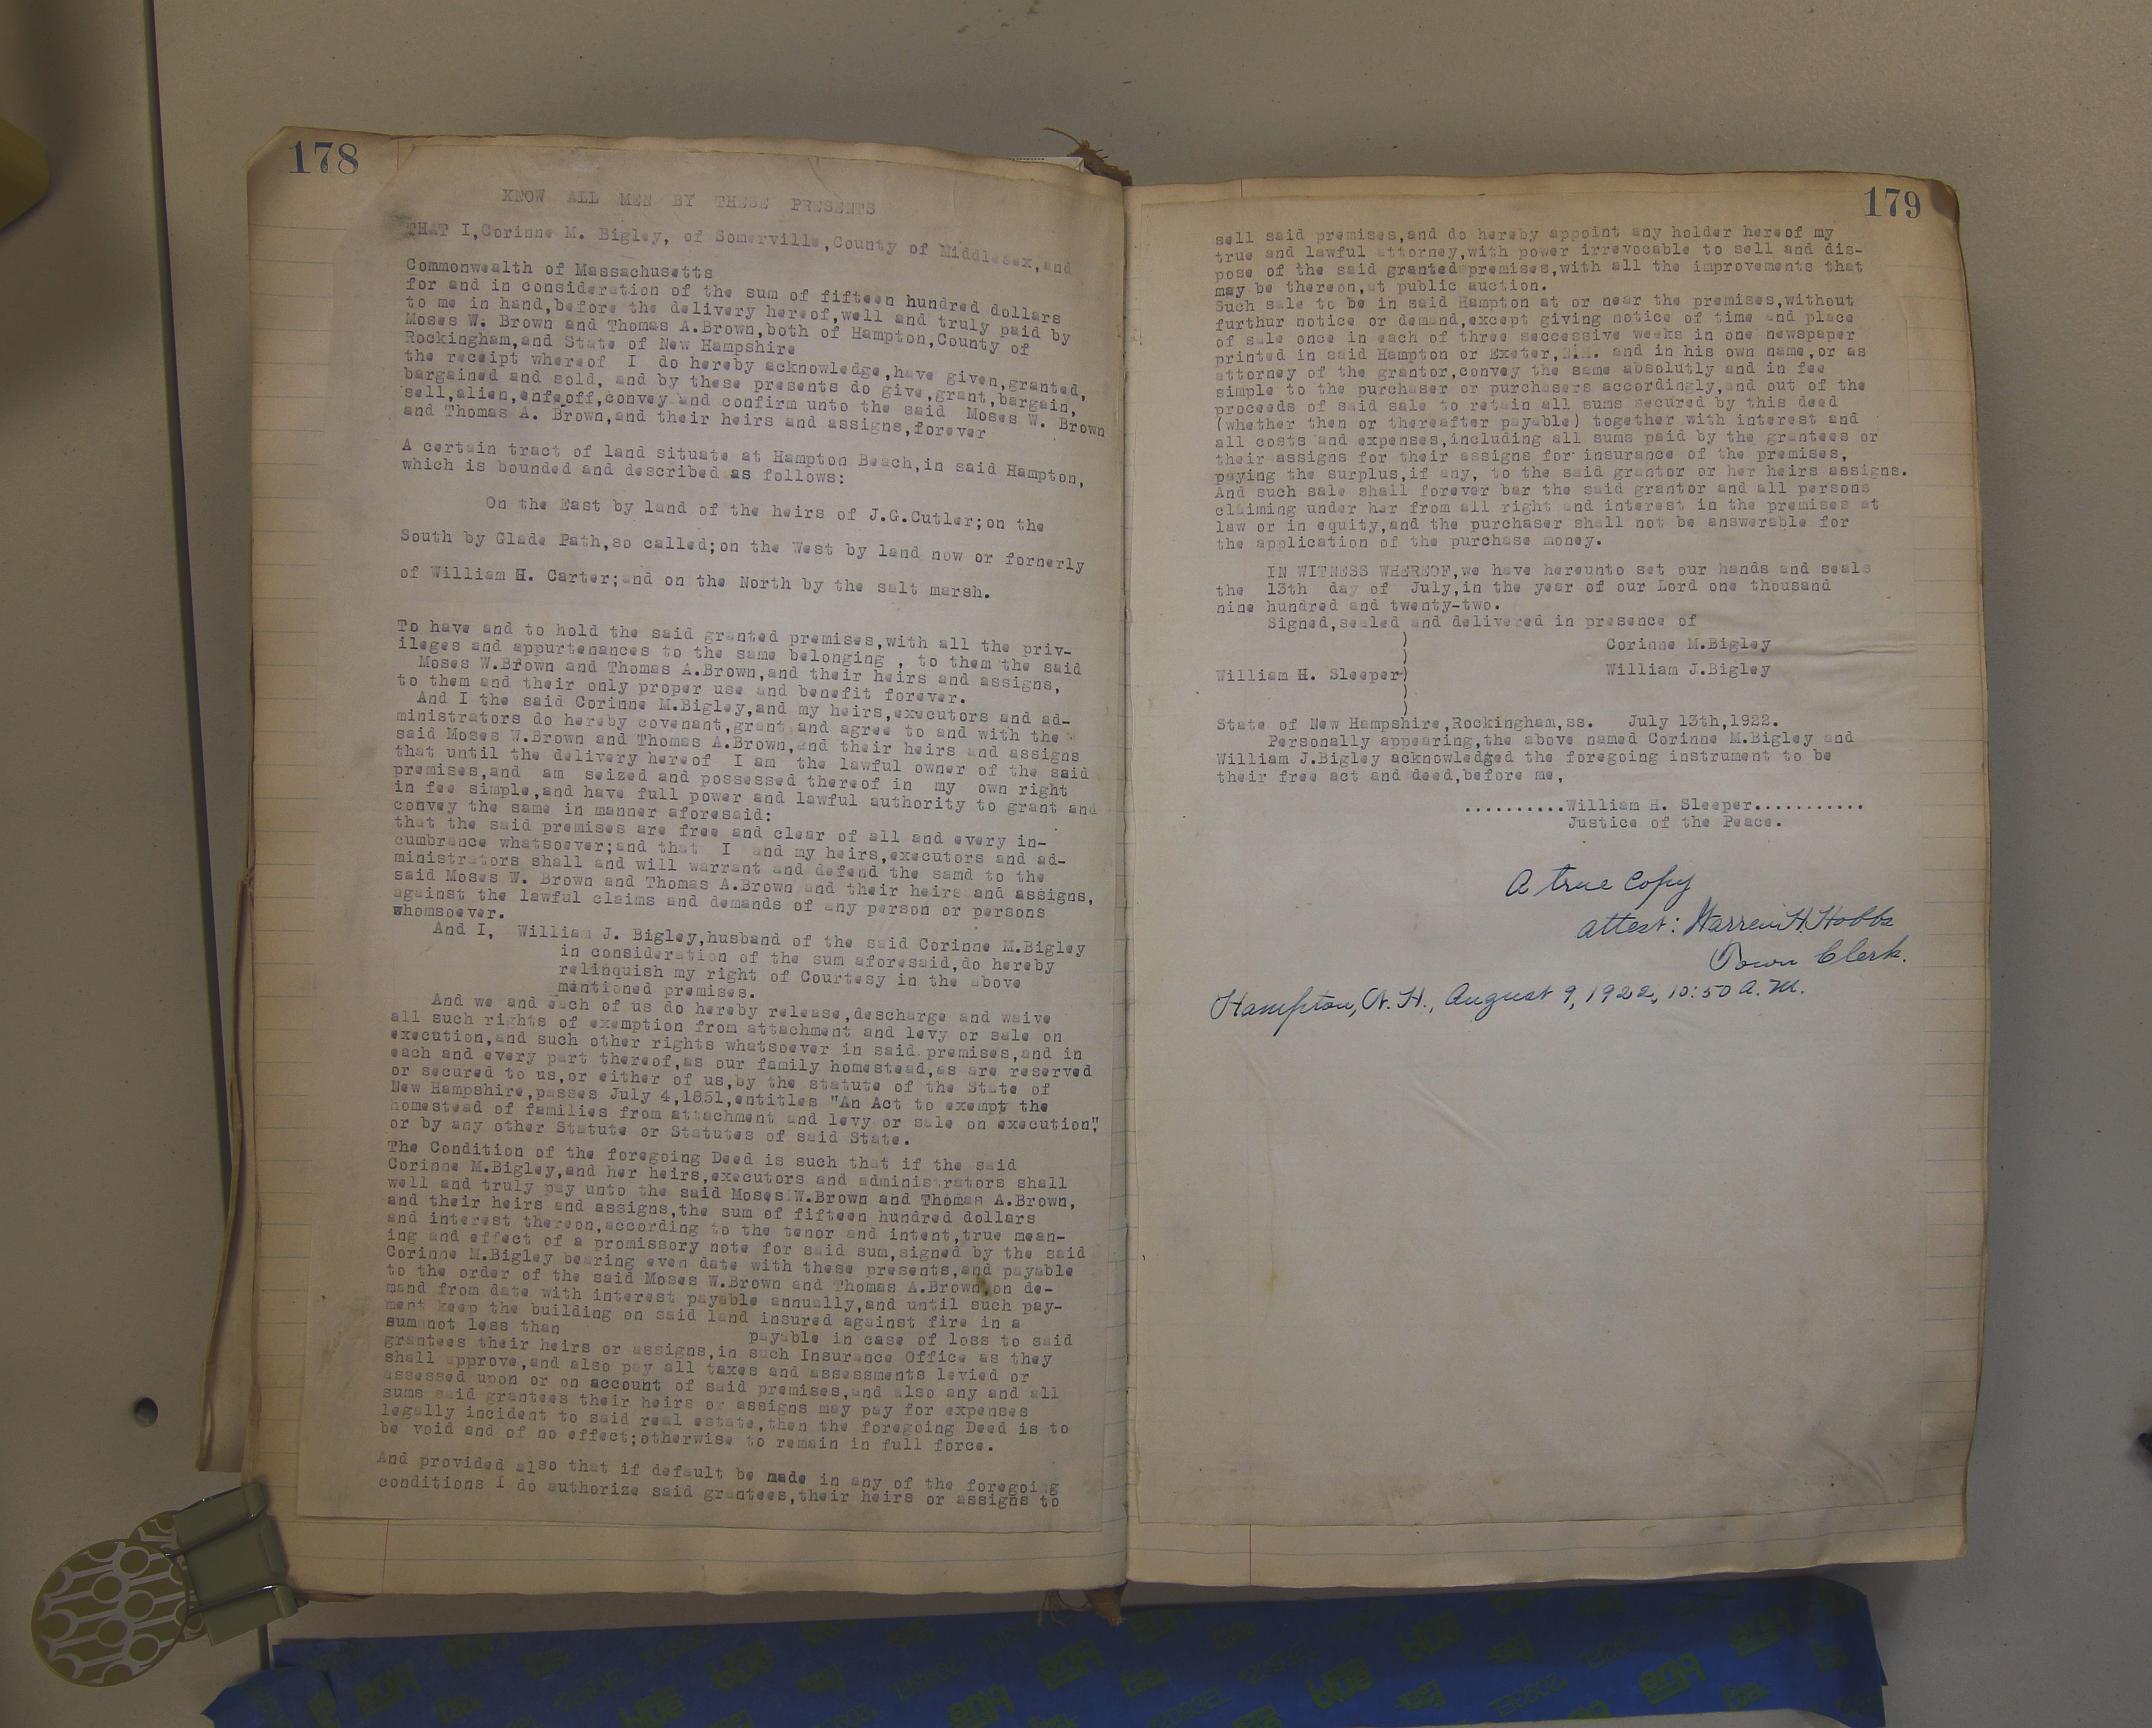 178
KNOW ALL MEN BY THESE PRESENTS
THAT I,Corinne M. Bigley, of Somerville,County of Middlesex,and
Commonwealth of Massachusetts
for and in consideration of the sum of fifteen hundred dollars
to me in hand,before the delivery hereof,well and truly paid by
Moses W. Brown and Thomas A.Brown,both of Hampton,County of
Rockingham,and State of New Hampshire
the receipt whereof I do hereby acknowledge,have given,granted,
bargained and sold, and by these presents do give,grant,bargain,
sell,alien,enfeoff,convey and confirm unto the said Moses W. Brown
and Thomas A. Brown,and their heirs and assigns,forever
A certain tract of land situate at Hampton Beach,in said Hampton,
which is bounded and described as follows:
On the East by land of the heirs of J.G.Cutler;on the
South by Glade Path,so called;on the West by land now or fornerly
of William H. Carter;and on the North by the salt marsh.
To have and to hold the said granted premises,with all the priv-
ileges and appurtenances to the same belonging , to them the said
Moses W.Brown and Thomas A.Brown,and their heirs and assigns,
to them and their only proper use and benefit forever.
And I the said Corinne M.Bigley,and my heirs,executors and ad-
ministrators do hereby covenant,grant and agree to and with the
said Moses W.Brown and Thomas A.Brown,and their heirs and assigns
that until the delivery hereof I am the lawful owner of the said
premises,and am seized and possessed thereof in my own right
in fee simple,and have full power and lawful authority to grant and
convey the same in manner aforesaid:
that the said premises are free and clear of all and every in-
cumbrance whatsoever;and that I and my heirs,executors and ad-
ministrators shall and will warrant and defend the samd to the
said Moses W. Brown and Thomas A.Brown and their heirs and assigns,
against the lawful claims and demands of any person or persons
whomsoever.
And I, William J. Bigley,husband of the said Corinne M.Bigley
in consideration of the sum aforesaid,do hereby
relinquish my right of Courtesy in the above
mentioned premises.
And we and each of us do hereby release,descharge and waive
all such rights of exemption from attachment and levy or sale on
execution,and such other rights whatsoever in said premises,and in
each and every part thereof,as our family homestead,as are reserved
or secured to us,or either of us,by the statute of the State of
New Hampshire,passes July 4,1851,entitles "An Act to exempt the
homestead of families from attachment and levy or sale on execution",
or by any other Statute or Statutes of said State.
The Condition of the foregoing Deed is such that if the said
Corinne M.Bigley,and her heirs,executors and administrators shall
well and truly pay unto the said Moses W.Brown and Thomas A.Brown,
and their heirs and assigns,the sum of fifteen hundred dollars
and interest thereon,according to the tenor and intent,true mean-
ing and effect of a promissory note for said sum,signed by the said
Corinne M.Bigley bearing even date with these presents,and payable
to the order of the said Moses W.Brown and Thomas A.Brown,on de-
mand from date with interest payable annually,and until such pay-
ment keep the building on said land insured against fire in a
sum not less than payable in case of loss to said
grantees their heirs or assigns,in such Insurance Office as they
shall approve,and also pay all taxes and assessments levied or
assessed upon or on account of said premises,and also any and all
sums said grantees their heirs or assigns may pay for expenses
legally incident to said real estate,then the foregoing Deed is to
be void and of no effect;otherwise to remain in full force.
And provided also that if default be made in any of the foregoing
conditions I do authorize said grantees,their heirs or assigns to
179
sell said premises,and do hereby appoint any holder hereof my
true and lawful attorney,with power irrevocable to sell and dis-
pose of the said granted premises,with all the improvements that
may be thereon,at public auction.
Such sale to be in said Hampton at or near the premises,without
furthur notice or demand,except giving notice of time and place
of sale once in each of three seccessive weeks in one newspaper
printed in said Hampton or Exeter,N.H. and in his own name,or as
attorney of the grantor,convey the same absolutly and in fee
simple to the purchaser or purchasers accordingly,and out of the
proceeds of said sale to retain all sums secured by this deed
(whether then or thereafter payable) together with interest and
all costs and expenses,including all sums paid by the grantees or
their assigns for their assigns for insurance of the premises,
paying the surplus,if any, to the said grantor or her heirs assigns.
And such sale shall forever bar the said grantor and all persons
claiming under her from all right and interest in the premises at
law or in equity,and the purchaser shall not be answerable for
the application of the purchase money.
IN WITNESS WHEREOF,we have hereunto set our hands and seals
the 13th day of July,in the year of our Lord one thousand
nine hundred and twenty-two.
Signed,sealed and delivered in presence of
) Corinne M.Bigley
)
William H. Sleeper) William J.Bigley
)
)
State of New Hampshire,Rockingham,ss. July 13th,1922.
Personally appearing,the above named Corinne M.Bigley and
William J.Bigley acknowledged the foregoing instrument to be
their free act and deed,before me,
..........William H. Sleeper...........
Justice of the Peace.
A true Copy
attest: Warren H. Hobbs
Town Clerk.
Hampton, N.H., August 9, 1922, 10:50 A.M.